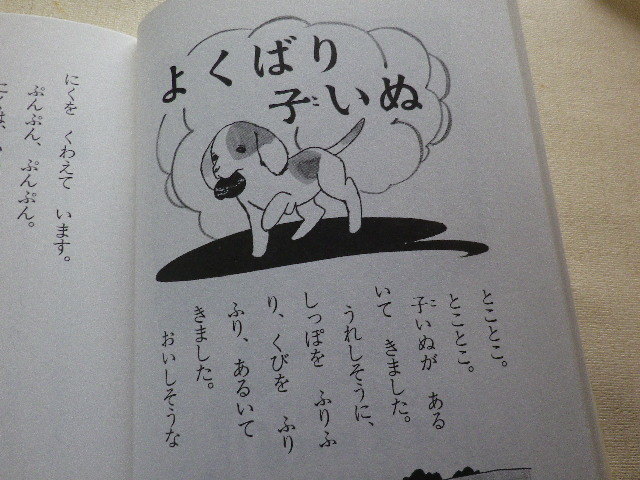 よくばり
子いぬ
とことこ。
とことこ。
子いぬが ある
いて きました。
うれしそうに、
しっぽを ふりふ
り、くびを ふり
ふり、あるいて
きました。
おいしそうな
にくを くわえて います。
ぷんぷん、ぷんぷん。